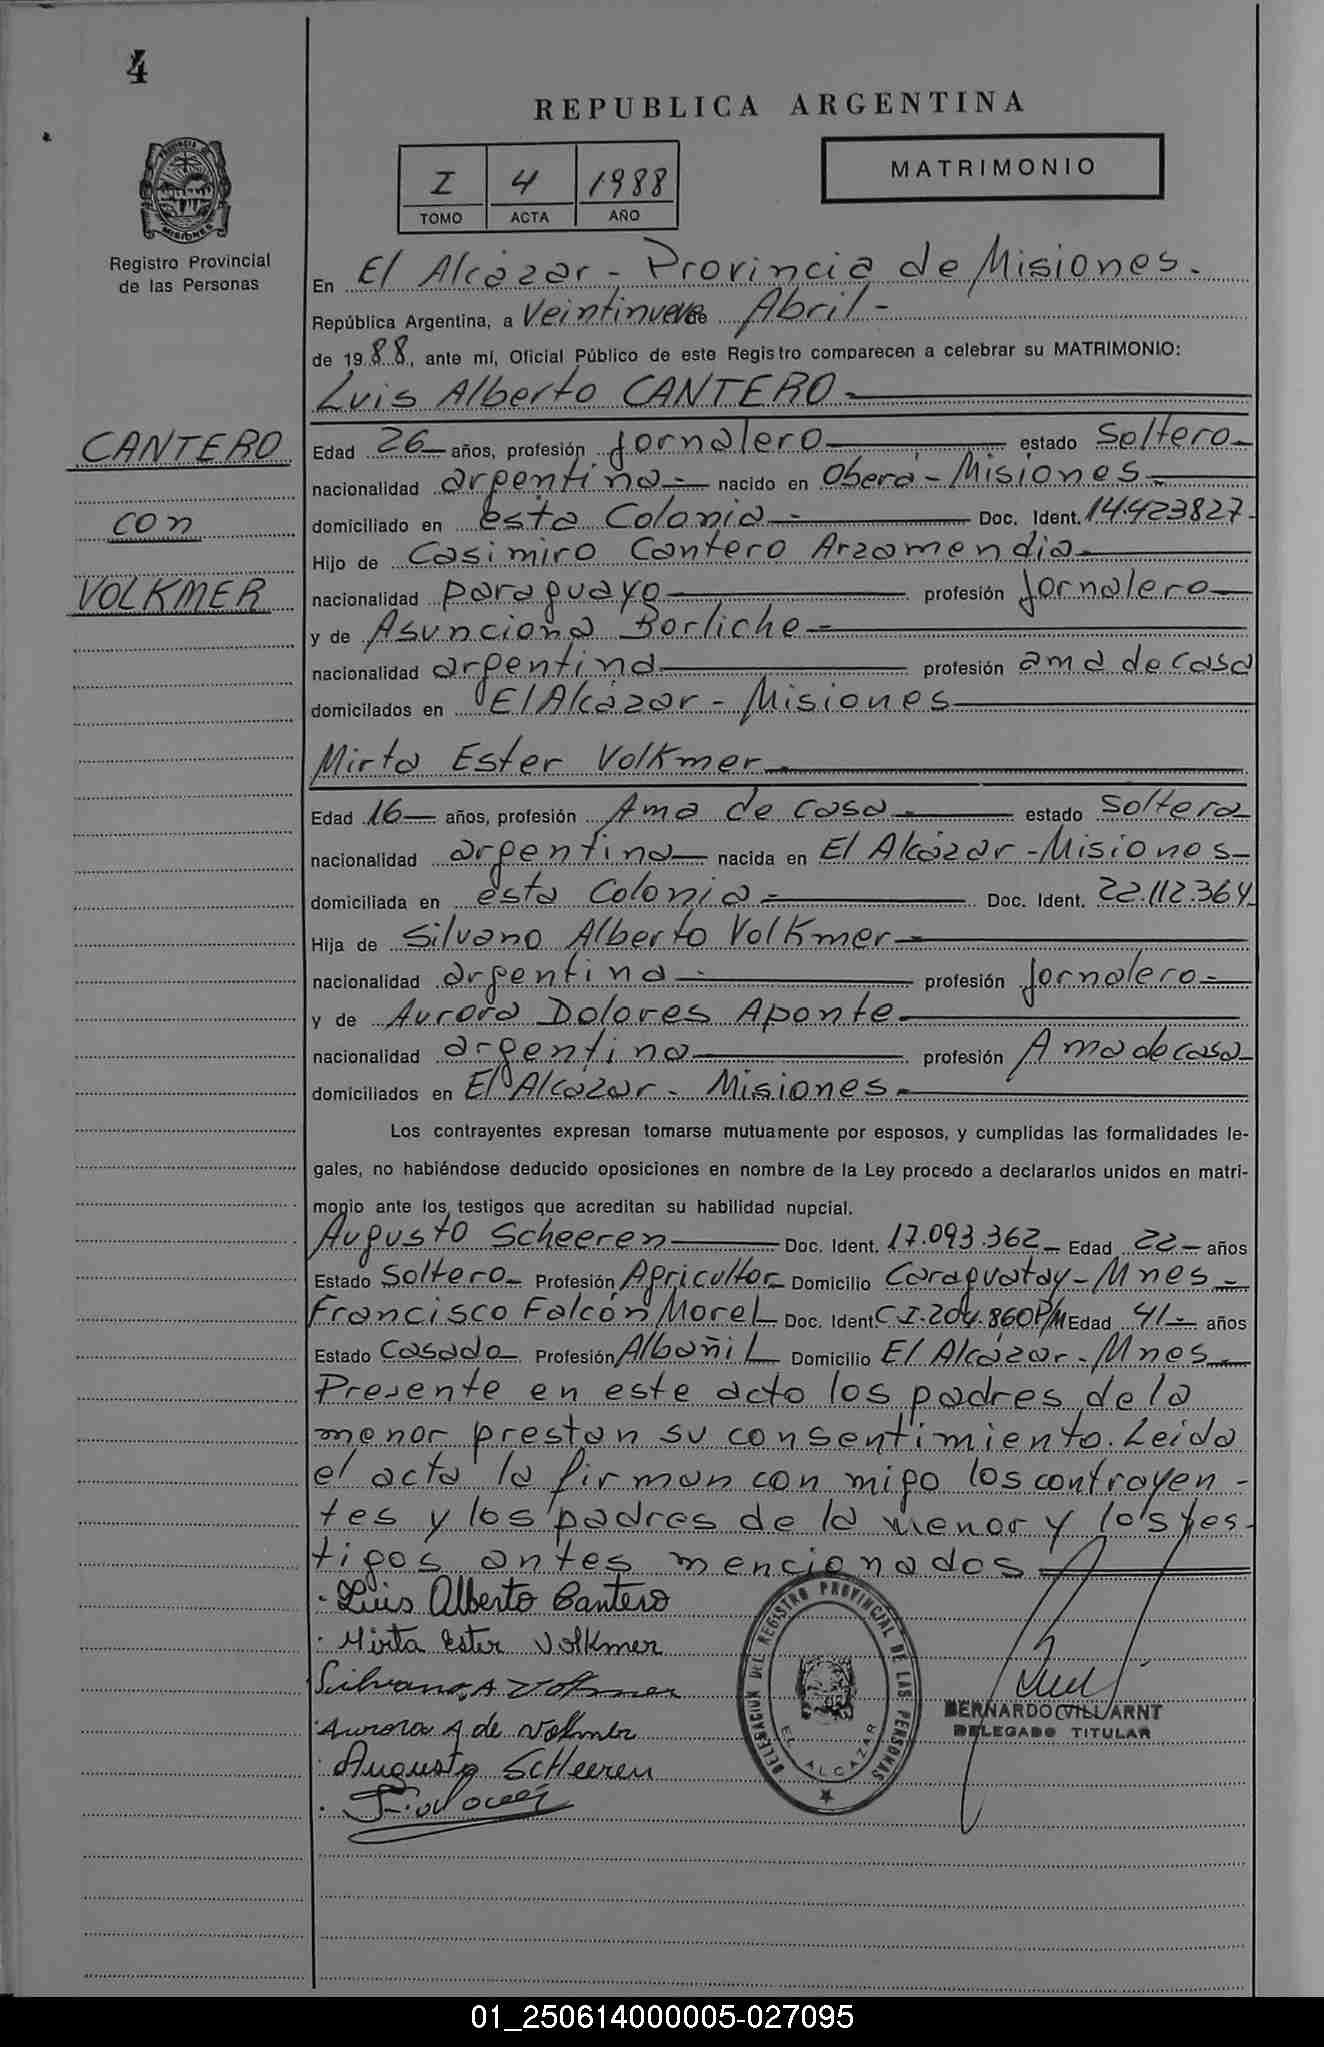 4
REPUBLICA ARGENTINA
I 4 1988
TOMO ACTA AÑO
MATRIMONIO
PROVINCIA DE MISIONES
Registro Provincial
de las Personas
En El Alcázar - Provincia de Misiones.
República Argentina, a Veintinueve de Abril -
de 1988, ante mí, Oficial Público de este Registro comparecen a celebrar su MATRIMONIO:
Luis Alberto CANTERO
CANTERO
con
VOLKMER
Edad 26 años, profesión Jornalero estado Soltero
nacionalidad argentina nacido en Oberá - Misiones
domiciliado en esta Colonia Doc. Ident. 14.423827
Hijo de Casimiro Cantero Arzamendia
nacionalidad paraguayo profesión Jornalero
y de Asunciona Borliche
nacionalidad argentina profesión ama de casa
domicilados en El Alcázar - Misiones
Mirta Ester Volkmer
Edad 16 años, profesión Ama de casa estado soltera
nacionalidad argentina nacida en El Alcázar - Misiones
domiciliada en esta Colonia Doc. Ident. 22.112.364
Hija de Silvano Alberto Volkmer
nacionalidad argentina profesión Jornalero
y de Aurora Dolores Aponte
nacionalidad argentina profesión Ama de casa
domiciliados en El Alcázar - Misiones
Los contrayentes expresan tomarse mutuamente por esposos, y cumplidas las formalidades le-
gales, no habiéndose deducido oposiciones en nombre de la Ley procedo a declararlos unidos en matri-
monio ante los testigos que acreditan su habilidad nupcial.
Augusto Scheeren Doc. Ident. 17.093.362 Edad 22 años
Estado Soltero Profesión Agricultor Domicilio Caraguatay - Mnes
Francisco Falcón Morel Doc. Ident C.I. 204.860P/M Edad 41 años
Estado Casado Profesión Albañil Domicilio El Alcázar - Mnes
Presente en este acto los padres de la
menor prestan su consentimiento. Leida
el acta la firman con migo los contrayen-
tes y los padres de la menor y los tes-
tigos antes mencionados
Luis Alberto Cantero
Mirta Ester Volkmer
Silvano A Volkmer
Aurora A de Volkmer
Augusto Scheeren
DELEGACION DEL REGISTRO PROVINCIAL DE LAS PERSONAS
EL ALCAZAR
BERNARDO VILLARNT
DELEGADO TITULAR
01_250614000005-027095